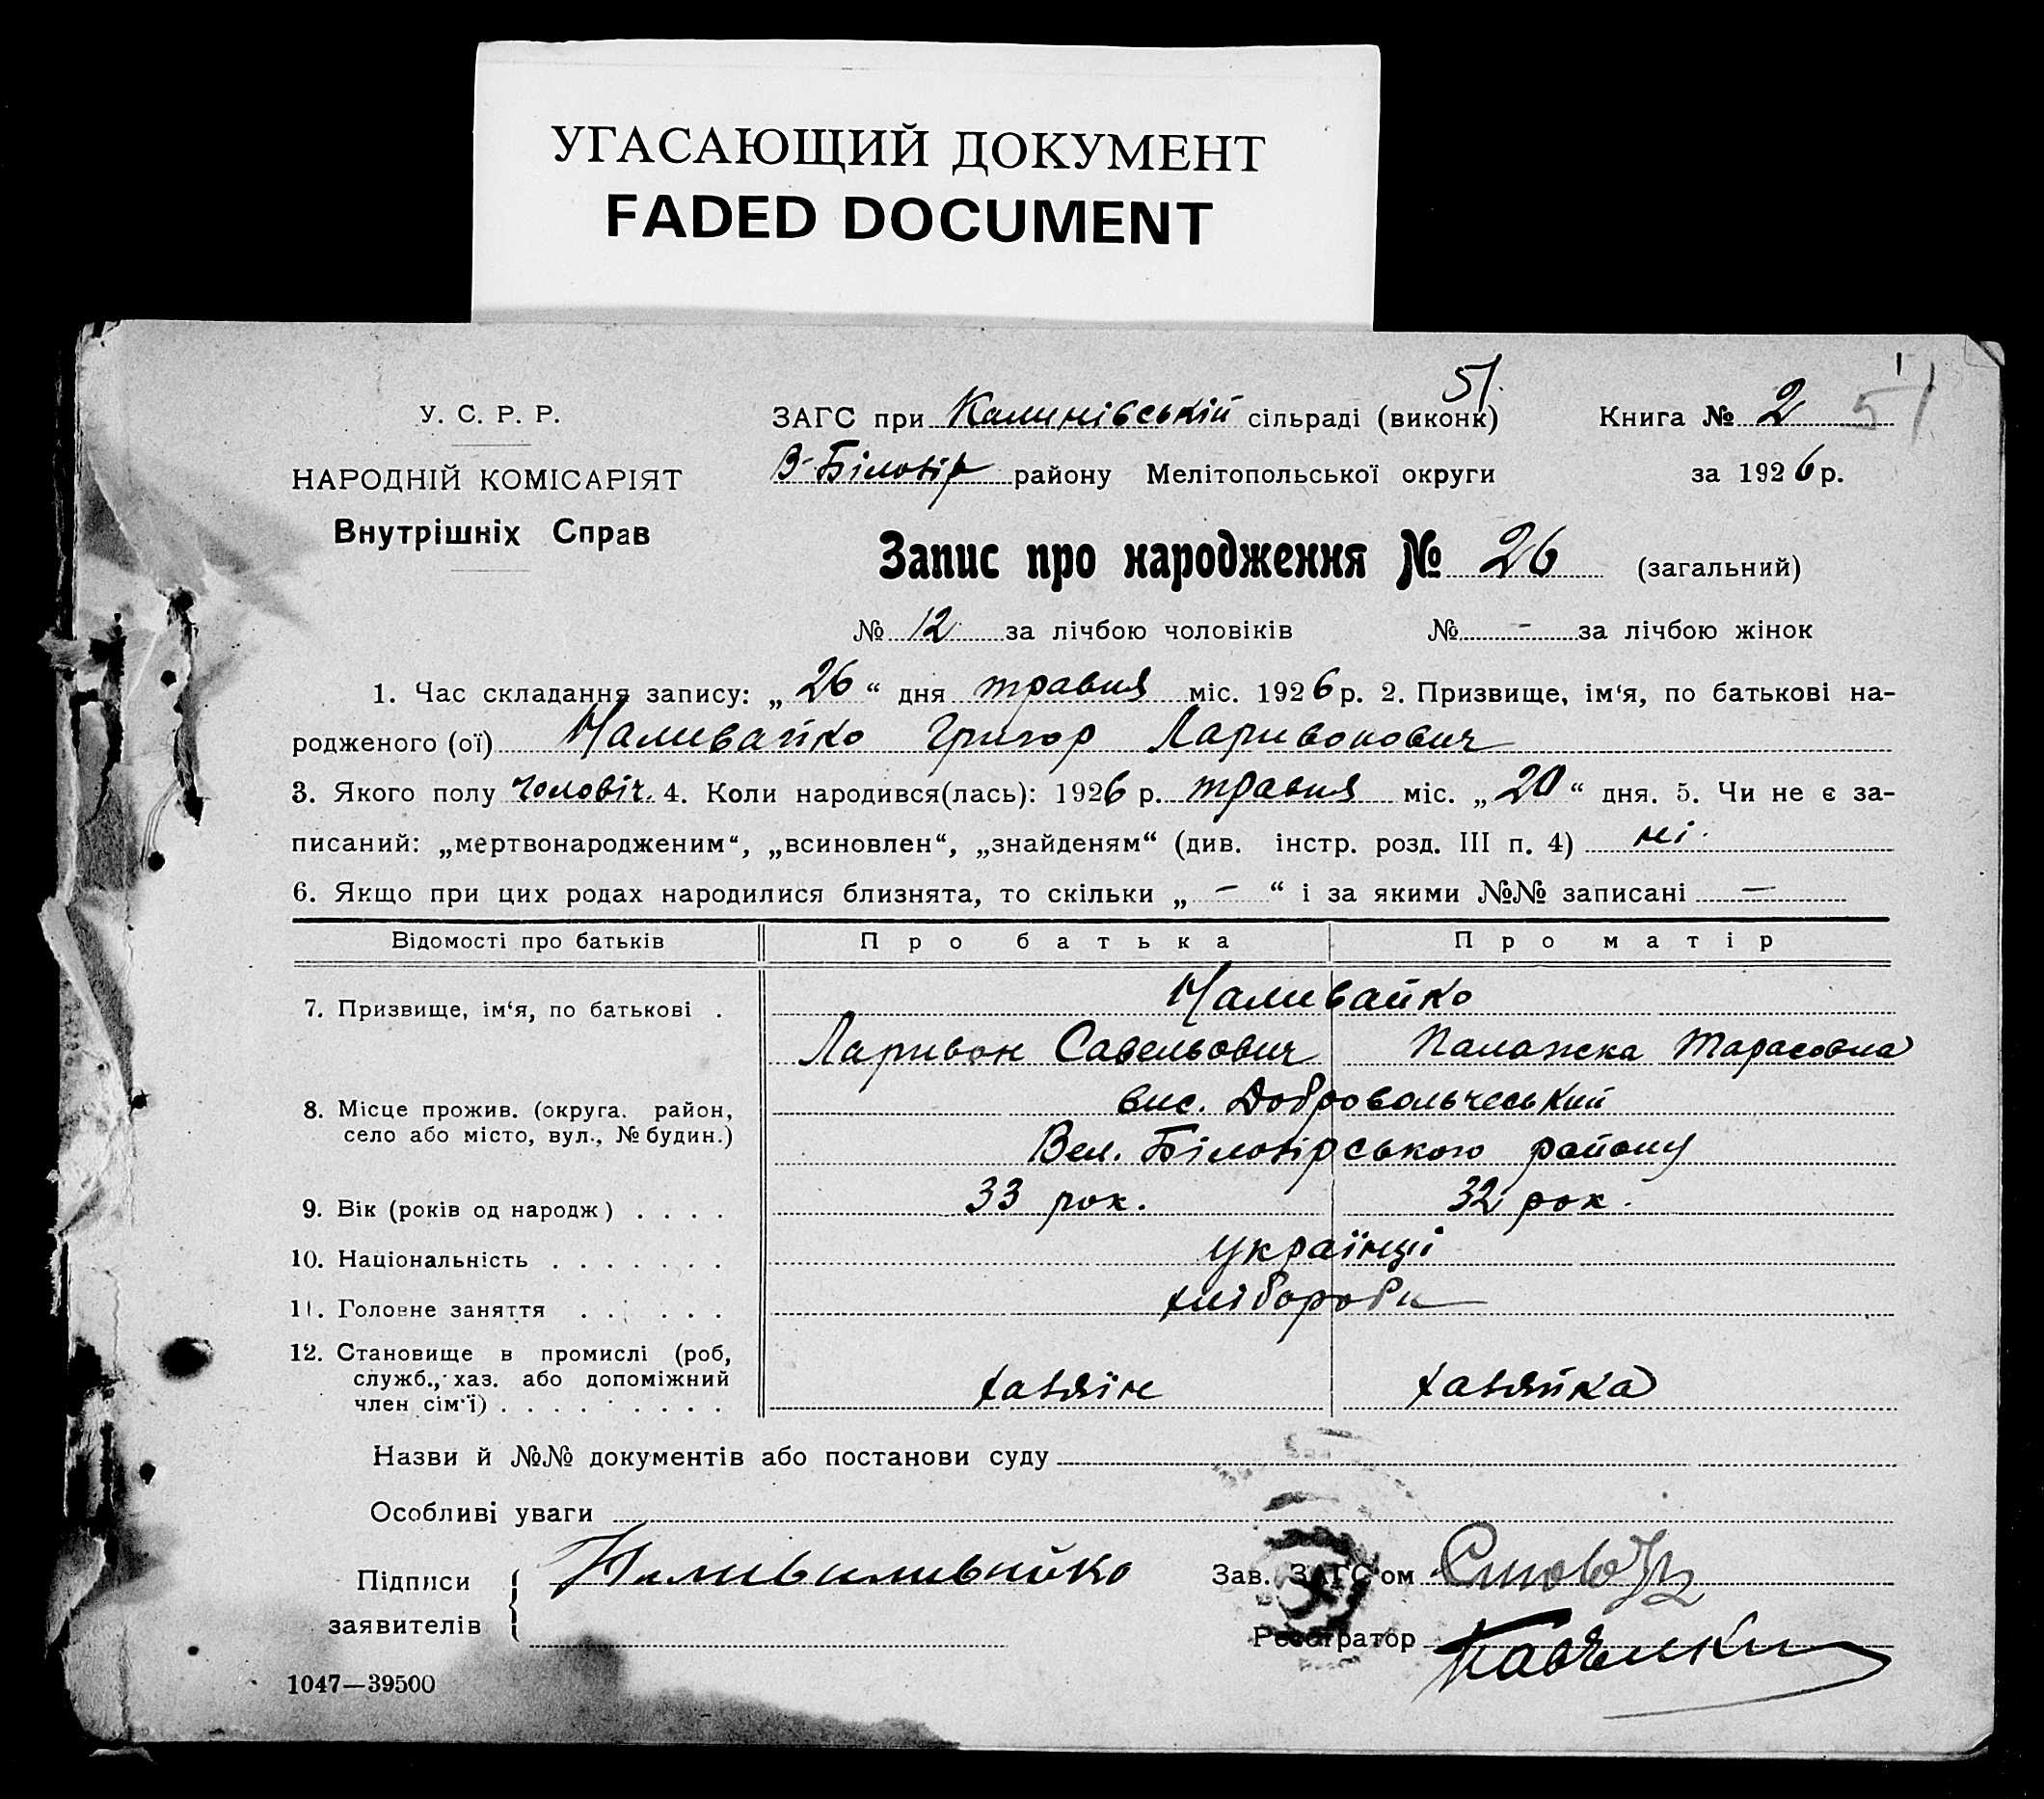 УГАСАЮЩИЙ ДОКУМЕНТ
FADED DOCUMENT
51
51
У. С. Р. Р.
НАРОДНІЙ КОМІСАРІЯТ
Внутрішніх Справ
ЗАГС при Калинівській сільраді (виконк) Книга № 2
В-Білозір району Мелітопольської округи за 1926 р.
Запис про народження № 26 (загальний)
№ 12 за лічбою чоловіків № - за лічбою жінок
1. Час складання запису: „ 26 “ дня травня міс. 1926 р. 2. Призвище, ім‘я, по батькові на-
родженого (ої) Наливайко Григор Ларивонович
3. Якого полу чоловіч. 4. Коли народився(лась): 1926 р. травня міс. „ 20 “ дня. 5. Чи не є за-
писаний: „мертвонародженим“, „всиновлен“, „знайденям“ (див. інстр. розд. III п. 4) ні.
6. Якщо при цих родах народилися близнята, то скільки „ - “ і за якими №№ записані —
Відомості про батьків Про батька Про матір
7. Призвище, ім‘я, по батькові . Наливайко
Ларивон Савельович Палажка Тарасовна
8. Місце прожив. (округа. район,
село або місто, вул., № будин.)
вис. Добровольчеський
Вел. Білозірського району
9. Вік (років од народж) . . . . 33 рок. 32 рок.
10. Національність . . . . . . . українці
11. Головне заняття . . . . . . хлібороби
12. Становище в промислі (роб,
служб., хаз. або допоміжний
член сім‘ї) . . . . . . . . . хазяїн хазяйка
Назви й №№ документів або постанови суду
Особливі уваги
Підписи
заявителів
Зав. ЗАГС‘ом
Реєстратор
1047—39500